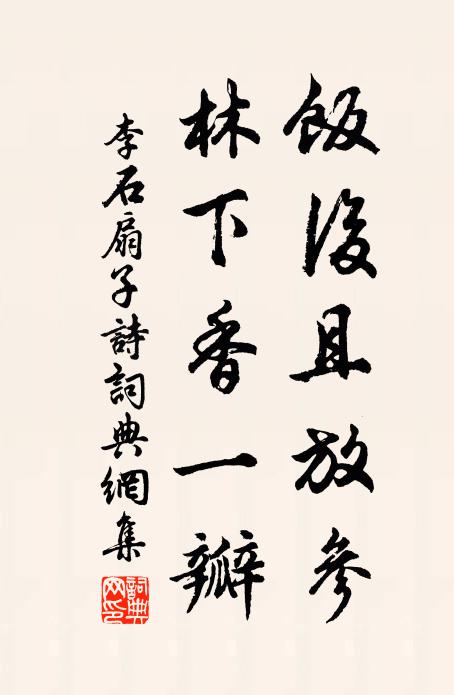 飯後且放參
林下香一瓣
李石扇子詩詞典網集
詞典網印